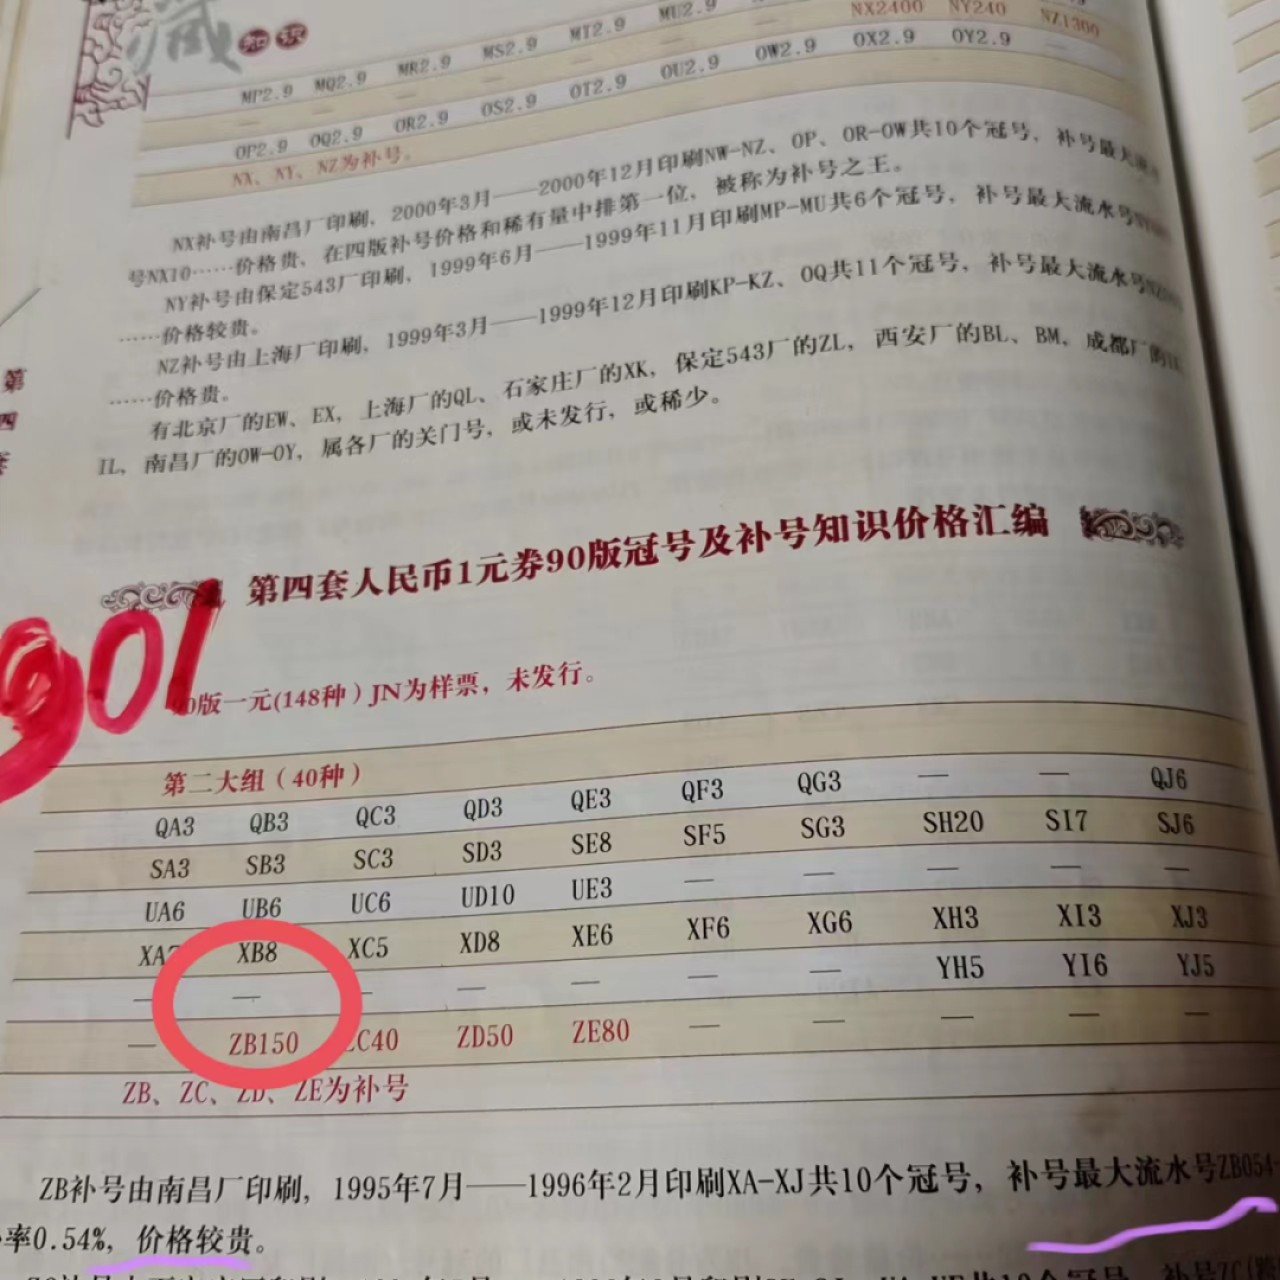 藏 知识
MP2.9 MQ2.9 MR2.9 MS2.9 MT2.9 MU2.9 — NX2400 NY240 NZ1300
OP2.9 OQ2.9 OR2.9 OS2.9 OT2.9 OU2.9 OW2.9 OX2.9 OY2.9 —
NX、NY、NZ为补号。
NX补号由南昌厂印刷，2000年3月——2000年12月印刷NW-NZ、OP、OR-OW共10个冠号，补号最大流水
号NX10……价格贵，在四版补号价格和稀有量中排第一位，被称为补号之王。
NY补号由保定543厂印刷，1999年6月——1999年11月印刷MP-MU共6个冠号，补号最大流水号
……价格较贵。
NZ补号由上海厂印刷，1999年3月——1999年12月印刷KP-KZ、OQ共11个冠号，补号最大流水号
……价格贵。
有北京厂的EW、EX，上海厂的QL、石家庄厂的XK，保定543厂的ZL，西安厂的BL、BM，成都厂的
IL，南昌厂的OW-OY，属各厂的关门号，或未发行，或稀少。
第四套
第四套人民币1元券90版冠号及补号知识价格汇编
901
90版一元(148种）JN为样票，未发行。
第二大组（40种）
QA3 QB3 QC3 QD3 QE3 QF3 QG3 — — QJ6
SA3 SB3 SC3 SD3 SE8 SF5 SG3 SH20 SI7 SJ6
UA6 UB6 UC6 UD10 UE3 — — — — —
XA7 XB8 XC5 XD8 XE6 XF6 XG6 XH3 XI3 XJ3
— — — — — — — YH5 YI6 YJ5
— ZB150 ZC40 ZD50 ZE80 — — — — —
ZB、ZC、ZD、ZE为补号
ZB补号由南昌厂印刷，1995年7月——1996年2月印刷XA-XJ共10个冠号，补号最大流水号ZB054
率0.54%，价格较贵。